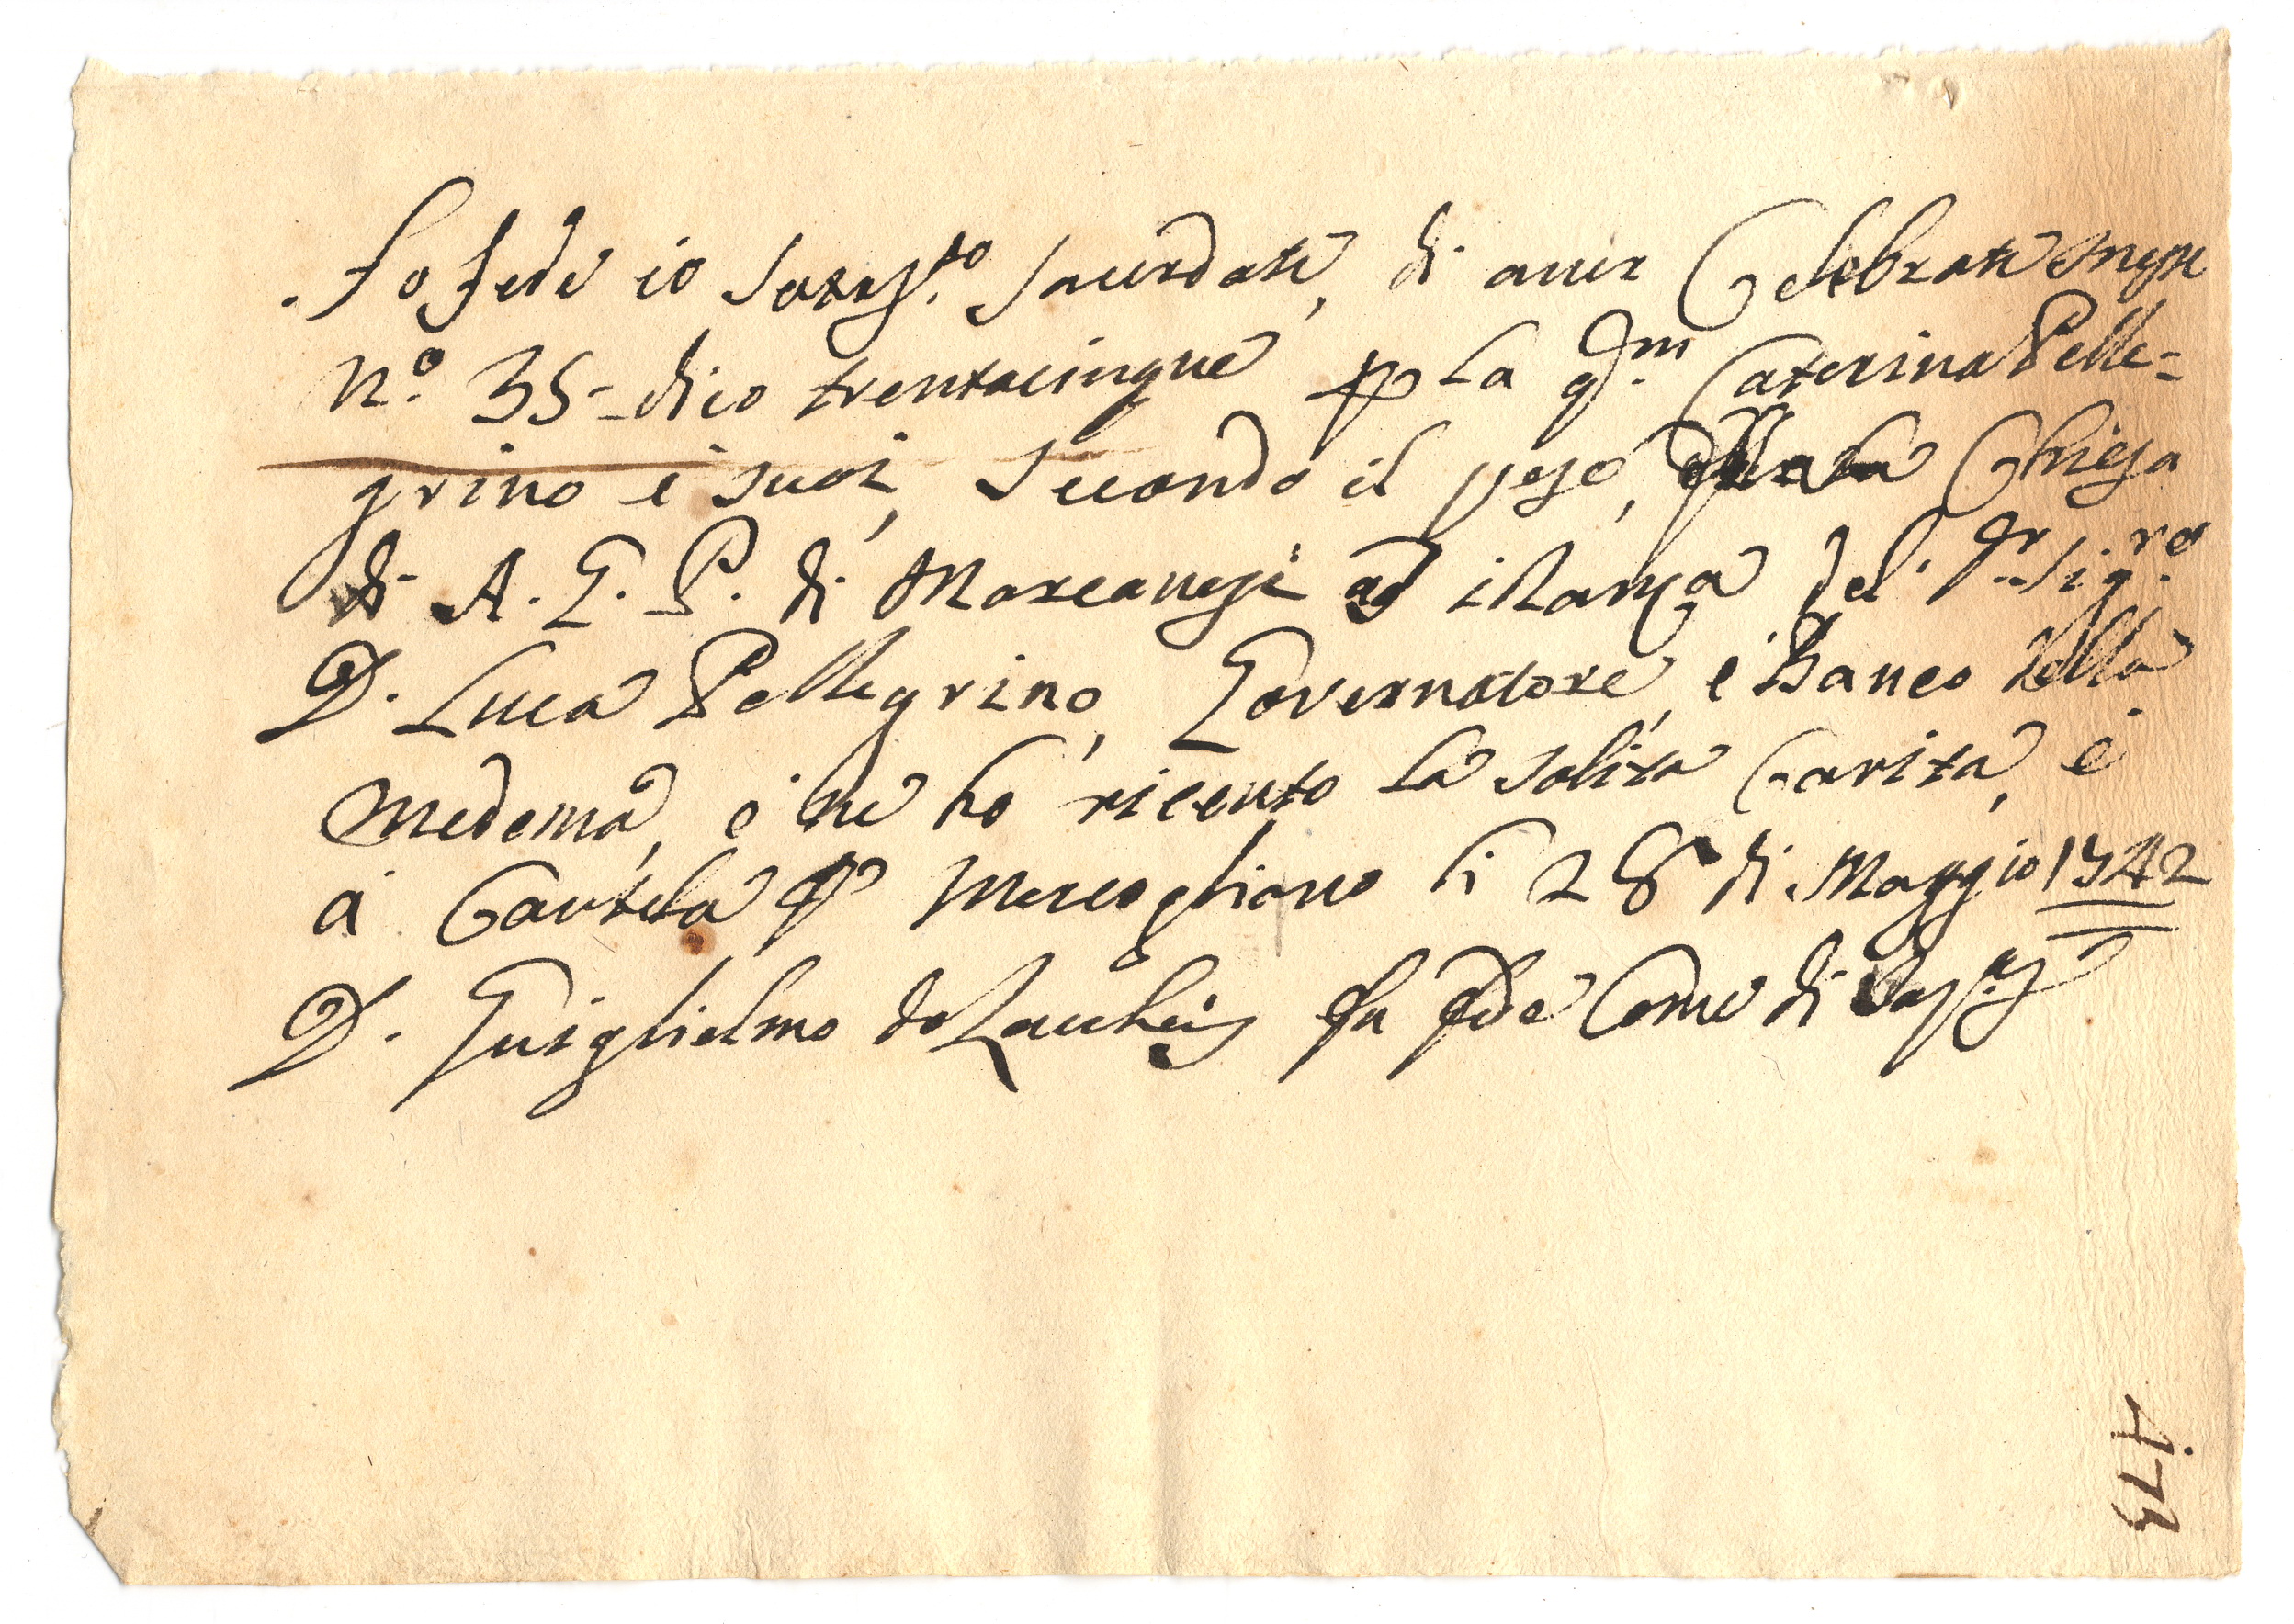 Fo fede io Sottos.to Sacerdote, di aver Celebrate messe
n.o 35 - dico trentacinque p la q.m Caterina Pelle=
grino e suoi, Secondo il peso, della Chiesa
di A. G. P. di Marcanese ad istanza del Sig.re
D. Luca Pellegrino, Governatore, e Banco della
medema, e ne ho ricevuto la solita Carità, e
a Cautela p Mercogliano li 28 di Maggio 1742
D. Guiglielmo fa fede Come di Sop.a
173